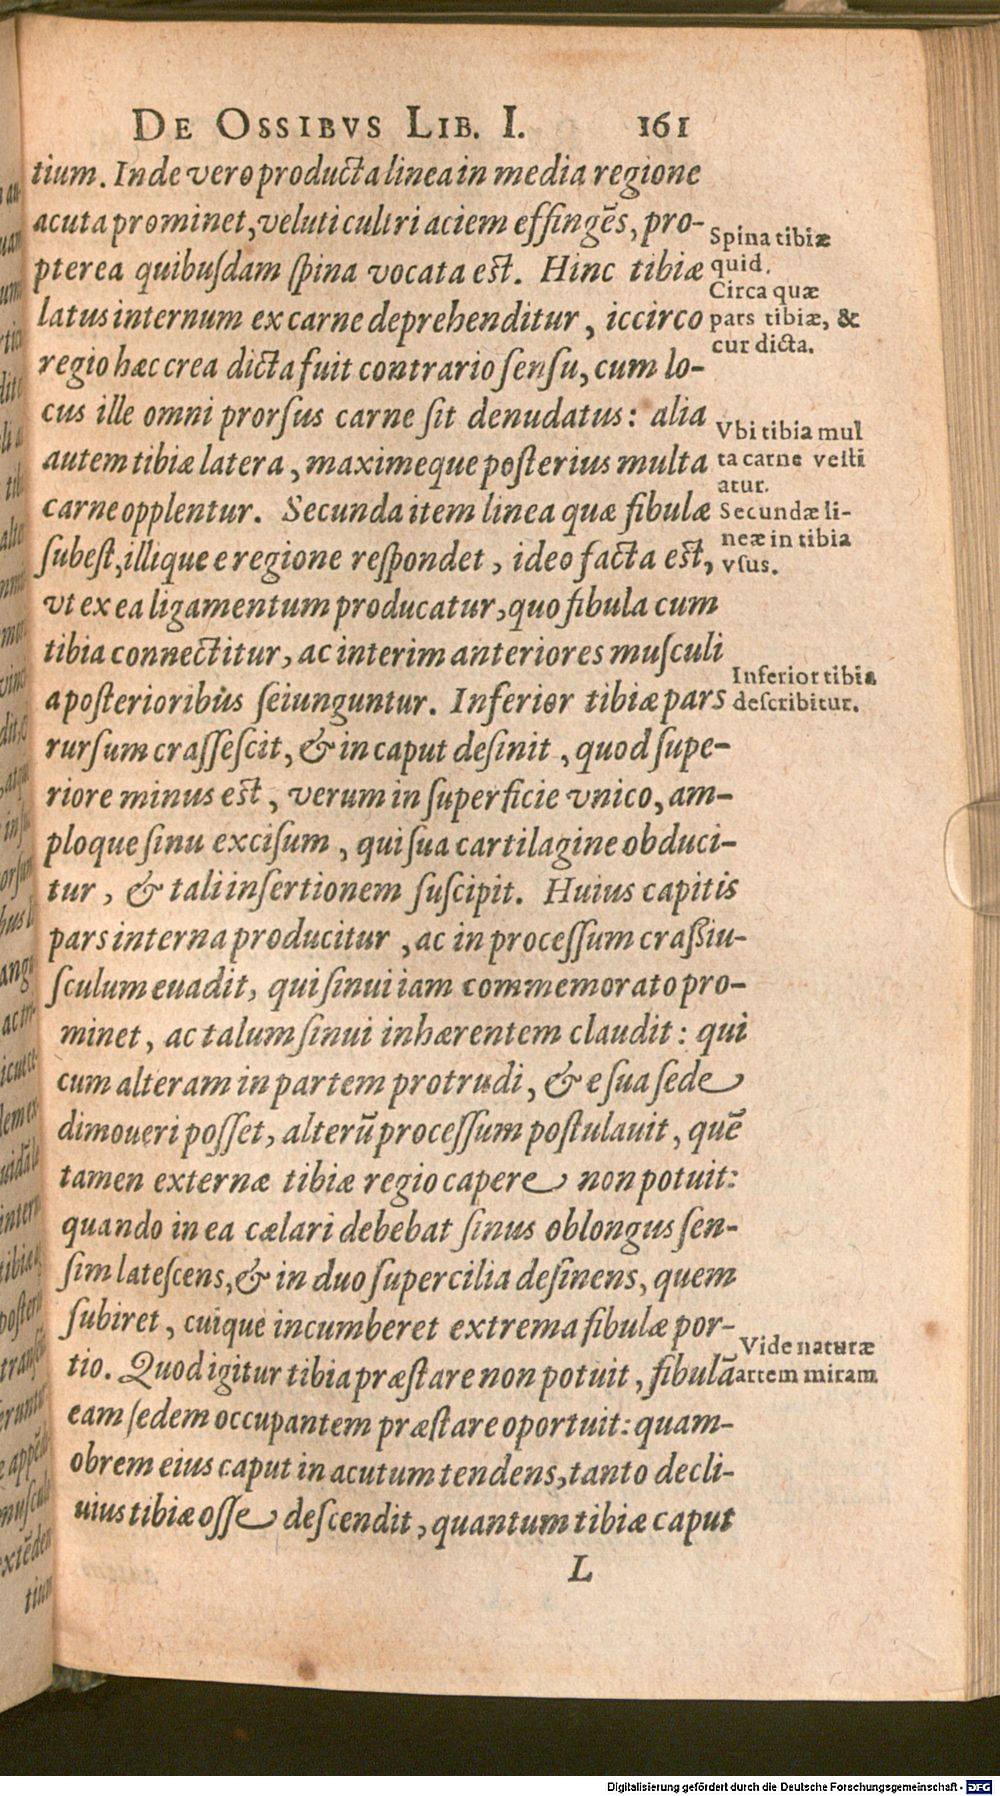 DE OSSIBVS LIB. I. 161
tium. Inde vero producta linea in media regione
acuta prominet, veluti cultri aciem effingēs, pro-
pterea quibusdam spina vocata est. Hinc tibiæ
latus internum ex carne deprehenditur, iccirco
regio hæc crea dicta fuit contrario sensu, cum lo-
cus ille omni prorsus carne sit denudatus: alia
autem tibiæ latera, maximeque posterius multa
carne opplentur. Secunda item linea quæ fibulæ
subest, illique e regione respondet, ideo facta est,
vt ex ea ligamentum producatur, quo fibula cum
tibia connectitur, ac interim anteriores musculi
a posterioribus seiunguntur. Inferior tibiæ pars
rursum crassescit, & in caput desinit, quod supe-
riore minus est, verum in superficie vnico, am-
ploque sinu excisum, qui sua cartilagine obduci-
tur, & tali insertionem suscipit. Huius capitis
pars interna producitur, ac in processum crassiu-
sculum euadit, qui sinui iam commemorato pro-
minet, ac talum sinui inhærentem claudit: qui
cum alteram in partem protrudi, & e sua sede
dimoueri posset, alterū processum postulauit, quē
tamen externæ tibiæ regio capere non potuit:
quando in ea cælari debebat sinus oblongus sen-
sim latescens, & in duo supercilia desinens, quem
subiret, cuique incumberet extrema fibulæ por-
tio. Quod igitur tibia præstare non potuit, fibulā
eam sedem occupantem præstare oportuit: quam-
obrem eius caput in acutum tendens, tanto decli-
uius tibiæ osse descendit, quantum tibiæ caput
L
Spina tibiæ
quid.
Circa quæ
pars tibiæ, &
cur dicta.
Vbi tibia mul
ta carne vesti
atur.
Secundæ li-
neæ in tibia
vsus.
Inferior tibia
describitur.
Vide naturæ
artem miram
Digitalisierung gefördert durch die Deutsche Forschungsgemeinschaft - DFG